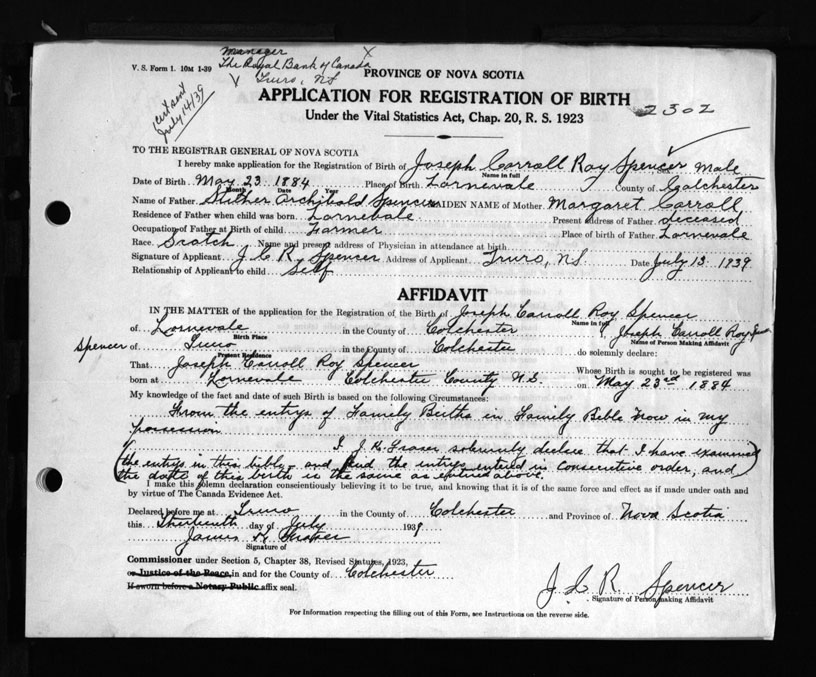 Manager X
V. S. Form 1. 10M 1-39 The Royal Bank of Canada
Truro, N.S.
PROVINCE OF NOVA SCOTIA
cert sent
July 14/39
APPLICATION FOR REGISTRATION OF BIRTH 2302
Under the Vital Statistics Act, Chap. 20, R. S. 1923
TO THE REGISTRAR GENERAL OF NOVA SCOTIA
I hereby make application for the Registration of Birth of Joseph Carroll Roy Spencer Sex Male
Name in full
Date of Birth May 23 1884 Place of Birth Lornevale County of Colchester
Month Date Year
Name of Father Archibald Spencer MAIDEN NAME of Mother Margaret Carroll
Residence of Father when child was born Lornevale Present address of Father deceased
Occupation of Father at Birth of child Farmer Place of birth of Father Lornevale
Race Scotch Name and present address of Physician in attendance at birth
Signature of Applicant J. C. R. Spencer Address of Applicant Truro, N.S. Date July 13 1939
Relationship of Applicant to child Self
AFFIDAVIT
IN THE MATTER of the application for the Registration of the Birth of Joseph Carroll Roy Spencer
Name in full
of Lornevale in the County of Colchester I Joseph Carroll Roy Spencer
Birth Place Name of Person Making Affidavit
Spencer of Truro in the County of Colchester do solemnly declare:
Present Residence
That Joseph Carroll Roy Spencer Whose Birth is sought to be registered was
born at Lornevale Colchester County N.S. on May 23rd 1884
My knowledge of the fact and date of such Birth is based on the following Circumstances:
From the entrys of Family Births in Family Bible now in my
possession
(I J. K. Fraser solemnly declare that I have examined
the entrys in this bible and find the entrys entered in consecutive order, and
the date of this birth is the same as entered above.)
I make this solemn declaration conscientiously believing it to be true, and knowing that it is of the same force and effect as if made under oath and
by virtue of The Canada Evidence Act.
Declared before me at Truro in the County of Colchester and Province of Nova Scotia
this Thirteenth day of July 1939
James K. Fraser
Signature of
Commissioner under Section 5, Chapter 38, Revised Statutes, 1923,
or Justice of the Peace, in and for the County of Colchester
If sworn before a Notary Public affix seal.
J. C. R. Spencer
Signature of Person making Affidavit
For Information respecting the filling out of this Form, see Instructions on the reverse side.